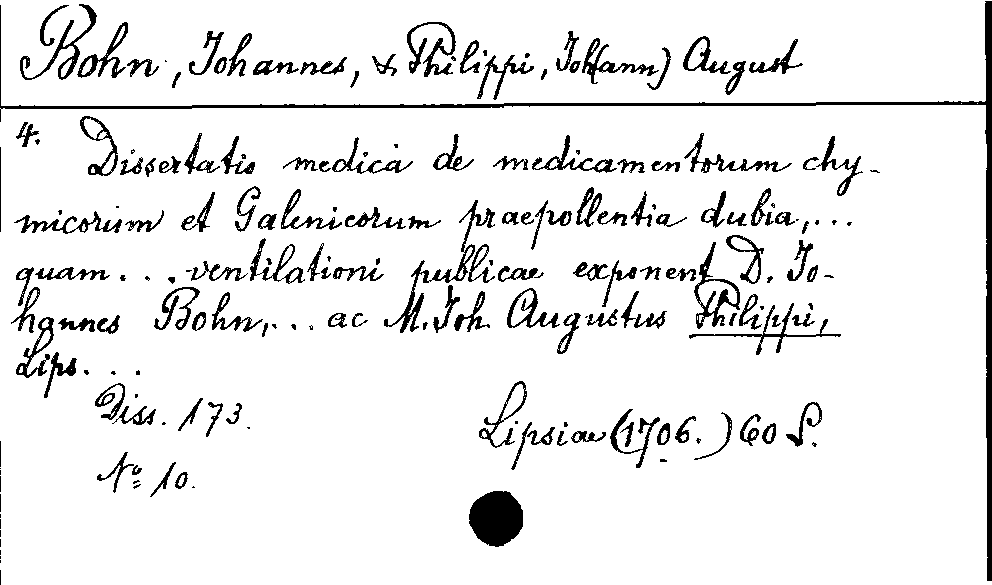 Bohn, Johannes, & Philippi, Joh(ann) August
4. Dissertatio medica de medicamentorum chy-
micorum et Galenicorum praepollentia dubia,...
quam... ventilationi publicae exponent D. Jo-
hannes Bohn,... ac M. Joh. Augustus Philippi,
Lips...
Diss. 173.
Lipsiae (1706.) 60 S.
No 10.